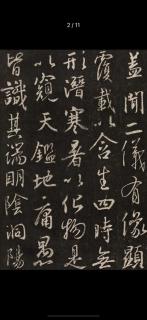 2 / 11
蓋聞二儀有像顯
覆載以含生四時無
形潛寒暑以化物是
以窺天鑑地庸愚
皆識其端明陰洞陽